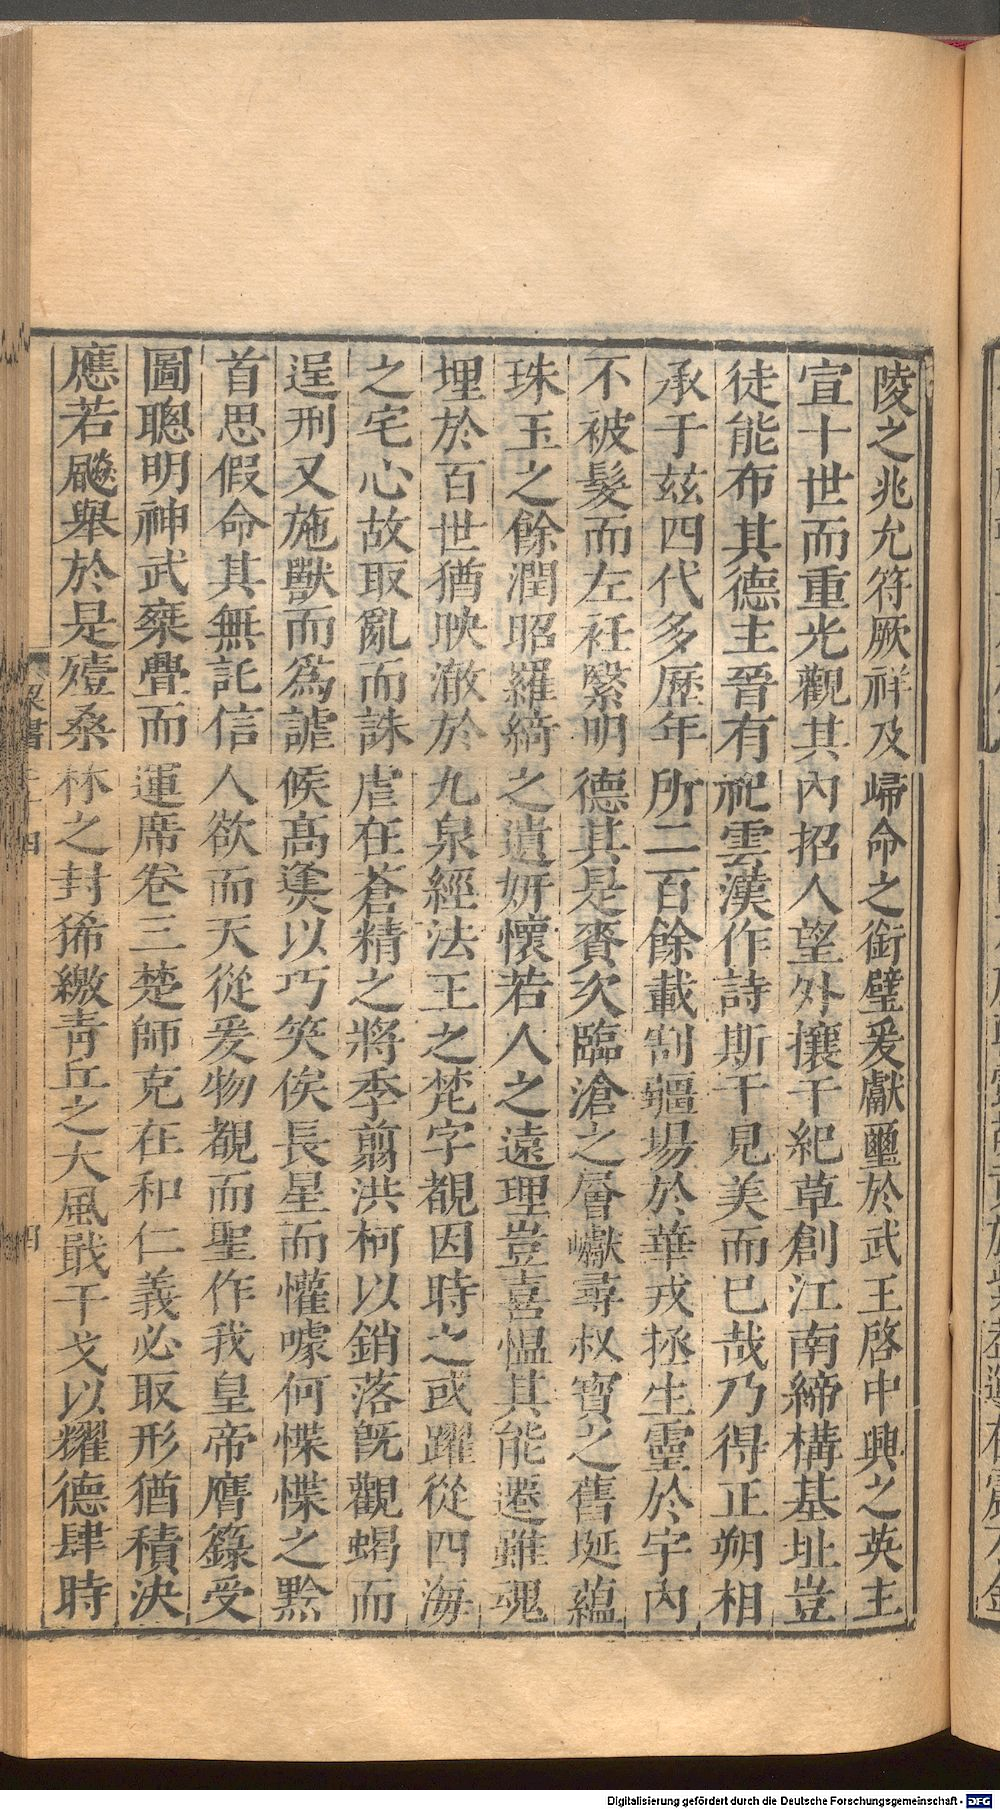 陵之兆允符厥祥及歸命之銜璧爰獻璽於武王啓中興之英主
宣十世而重光觀其內招人望外攘干紀草創江南締構基址豈
徒能布其德主晉有祀雲漢作詩斯干見美而已哉乃得正朔相
承于茲四代多歷年所二百餘載割疆場於華戎拯生靈於宇內
不被髮而左衽繄明德其是賚次臨滄之層巘尋叔寶之舊埏蘊
珠玉之餘潤昭羅綺之遺妍懷若人之遠理豈喜慍其能遷雖魂
埋於百世猶映澈於九泉經法王之梵宇覩因時之或躍從四海
之宅心故取亂而誅虐在蒼精之將季翦洪柯以銷落旣觀蝎而
逞刑又施獸而爲謔候高𢍆以巧笑俟長星而懽噱何慄慄之黔
首思假命其無託信人欲而天從爰物覩而聖作我皇帝膺籙受
圖聰明神武乘舋而運席卷三楚師克在和仁義必取形猶積決
應若飈舉於是殪桑林之封豨繳靑丘之大風戢干戈以耀德肆時
梁書
四
四
Digitalisierung gefördert durch die Deutsche Forschungsgemeinschaft - DFG